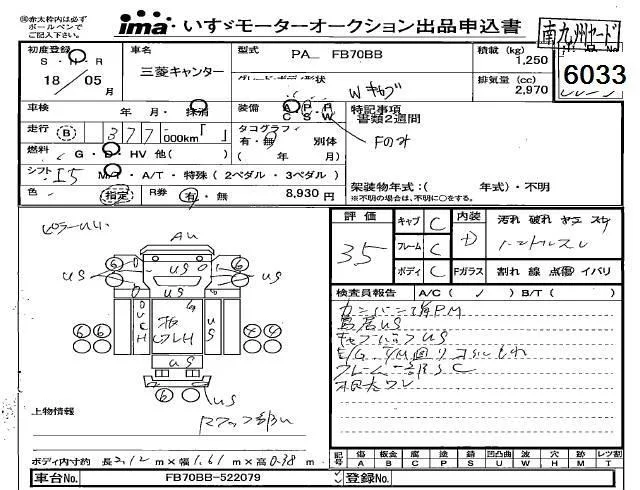 ※赤太枠内は必ず
ボールペンで
ご記入下さい。
ima いすゞモーターオークション出品申込書
南九州ヤード
初度登録 S・H・R 18/05月
車名 三菱キャンター
型式 PA_ FB70BB
積載 (kg) 1,250
排気量 (cc) 2,970
6033
Wキャブ
車検 年 月・抹消
装備 A・P・P C S W
特記事項
書類2週間
走行 B 377,000km「 」
タコグラフィ 有・無 別体 ( 年 月)
Fのみ
燃料 G・D・HV 他( )
シフト I5 MT・A/T・特殊(2ペダル・3ペダル)
色 指定 R券 有・無 8,930円
架装物年式:( 年式)・不明
※不明の場合は、不明に○をする。
評価 35
キャブ C
フレーム C
ボディ C
内装 D
汚れ 破れ ヤニ スレ
ハンドルスレ
Fガラス 割れ 線 点傷 イバリ
検査員報告 A/C( ✓ ) B/T( )
鳥居US
キャブバックUS
フレーム一部SC
AU
US US US
US US
UCH
板
ワレH
US
US
上物情報
ボディ内寸約 長2.12m×幅1.61m×高0.38m
記号 傷 A 板金 B 腐 C 塗 P 錆 S 凹凸曲 U 波 W 穴 H 跡 M レツ割 T
車台No. FB70BB-522079
登録No.